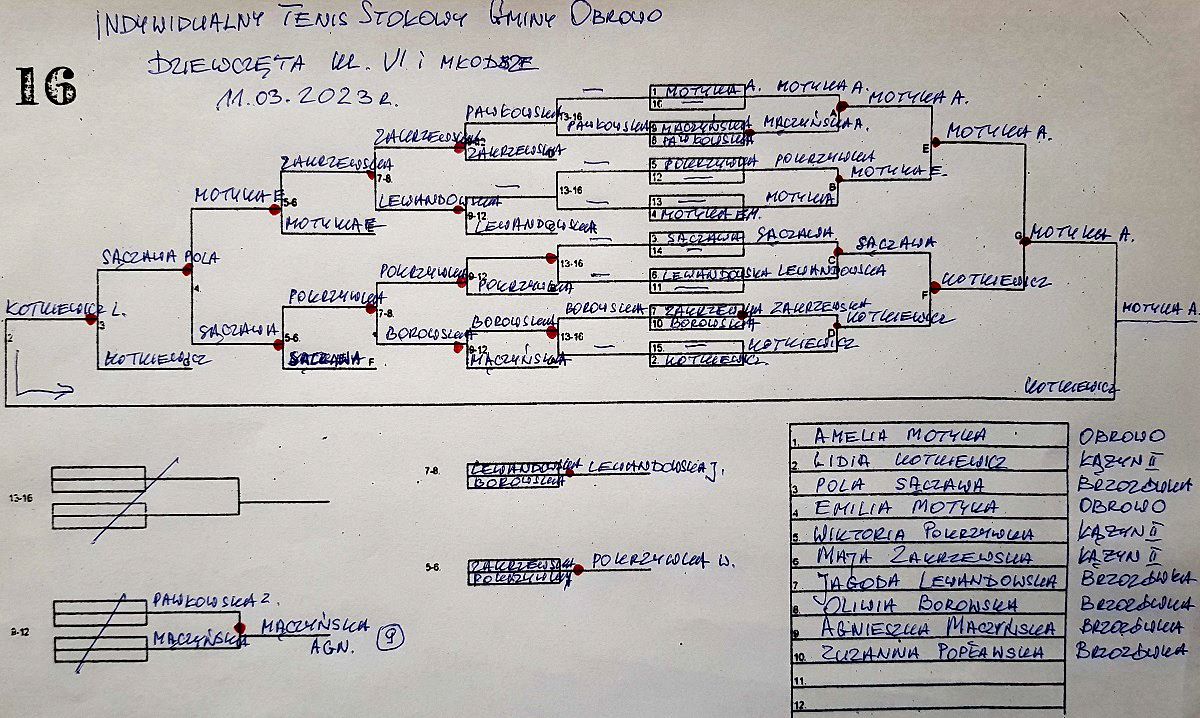 INDYWIDUALNY TENIS STOŁOWY GMINY OBROWO
DZIEWCZĘTA KL. VI i MŁODSZE
16
11.03.2023 R.
1 MOTYKA A.
16
MOTYKA A.
A
MOTYKA A.
13-16
PAWKOWSKA
PAWKOWSKA
9 MĄCZYŃSKA
8 PAWKOWSKA
MĄCZYŃSKA A.
ZAKRZEWSKA
ZAKRZEWSKA
E
MOTYKA A.
ZAKRZEWSKA
7-8
5 POKRZYWKA
12
POKRZYWKA
B
MOTYKA E.
MOTYKA E
5-6
LEWANDOWSKA
9-12
LEWANDOWSKA
13-16
13
4 MOTYKA EM.
MOTYKA
MOTYKA E
SĄCZAWA POLA
4
3 SĄCZAWA
14
SĄCZAWA
C
SĄCZAWA
G
MOTYKA A.
POKRZYWKA
9-12
POKRZYWKA
13-16
6 LEWANDOWSKA
11
LEWANDOWSKA
F
KOTKIEWICZ
POKRZYWKA
7-8
KOTKIEWICZ L.
2
3
KOTKIEWICZ
SĄCZAWA
5-6
SĄCZAWA
F
BOROWSKA
9-12
BOROWSKA
MĄCZYŃSKA
13-16
BOROWSKA
7 ZAKRZEWSKA
10 BOROWSKA
ZAKRZEWSKA
D
KOTKIEWICZ
15.
2. KOTKIEWICZ
KOTKIEWICZ
MOTYKA A.
KOTKIEWICZ
13-16
7-8.
LEWANDOWSKA
BOROWSKA
LEWANDOWSKA J.
5-6.
ZAKRZEWSKA
POKRZYWKA
POKRZYWKA W.
9-12
PAWKOWSKA Z.
MĄCZYŃSKA
MĄCZYŃSKA
AGN.
9
1. AMELIA MOTYKA OBROWO
2 LIDIA KOTKIEWICZ ŁĄŻYN II
3 POLA SĄCZAWA BRZOZÓWKA
4 EMILIA MOTYKA OBROWO
5. WIKTORIA POKRZYWKA ŁĄŻYN II
6 MAJA ZAKRZEWSKA ŁĄŻYN II
7. JAGODA LEWANDOWSKA BRZOZÓWKA
8. OLIWIA BOROWSKA BRZOZÓWKA
9 AGNIESZKA MĄCZYŃSKA BRZOZÓWKA
10. ZUZANNA POPŁAWSKA BRZOZÓWKA
11.
12.